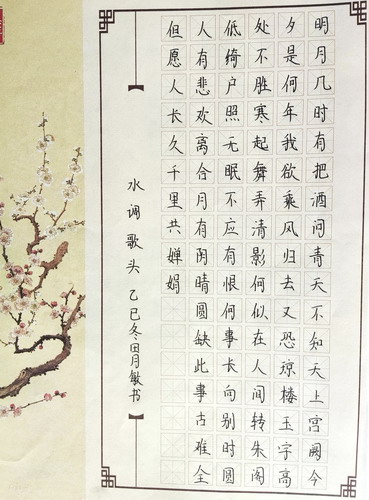 明月几时有把酒问青天不知天上宫阙今
夕是何年我欲乘风归去又恐琼楼玉宇高
处不胜寒起舞弄清影何似在人间转朱阁
低绮户照无眠不应有恨何事长向别时圆
人有悲欢离合月有阴晴圆缺此事古难全
但愿人长久千里共婵娟
水调歌头 乙巳冬田月敏书